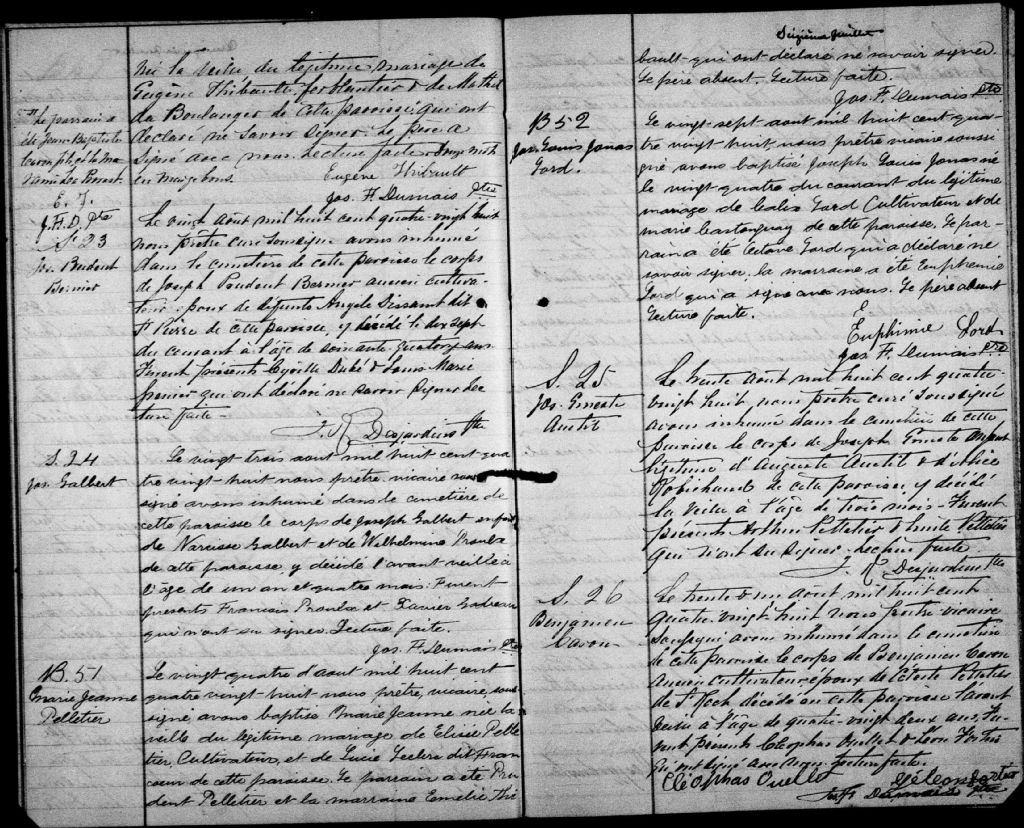 née la veille du légitime mariage de
Eugène Thibault, ferblantier & de Mathil
da Boulanger de cette paroisse qui ont
déclaré ne savoir signer. Le père a
signé avec nous. Lecture faite.
en marge bons.
Eugène Thibault
Jos. F. Dumais Ptre
Le parrain a
été Jean-Baptiste
Caron
E. T.
J. F. D. Ptre
S. 23
Jos. Prudent
Bernier
Le vingt Août mil huit cent quatre-vingt huit
nous prêtre curé soussigné avons inhumé
dans le cimetière de cette paroisse le corps
de Joseph Prudent Bernier ancien cultiva-
teur époux de défunte Angèle Dessaint dit
St Pierre de cette paroisse, y décédé le dix sept
du courant à l'âge de soixante-quatorze ans.
Furent présents Cyrille Dubé & Louis Marie
qui ont déclaré ne savoir signer Lec
ture faite -
Desjardins Ptre
S. 24
Jos. Galbert
Le vingt trois août mil huit cent qua
tre vingt-huit nous prêtre vicaire sous
signé avons inhumé dans le cimetière de
cette paroisse le corps de Joseph Galbert enfant
de Narcisse Galbert et de Wilhelmine Proulx
de cette paroisse, y décédé l'avant veille à
l'âge de un an et quatre mois. Furent
présents Francois Proulx et Xavier
qui n'ont su signer. Lecture faite.
Jos. F. Dumais Ptre
B. 51
Marie Jeanne
Pelletier
Le vingt-quatre d'août mil huit cent
quatre vingt-huit nous prêtre, vicaire, sous-
signé avons baptisé Marie Jeanne née la
veille du légitime mariage de Elisée Pelle
tier, Cultivateur, et de Lucie Leclerc dit Fran
coeur de cette paroisse. Le parrain a été Pru
dent Pelletier et la marraine Emélie Thi
Seizième feuillet
bault qui ont déclaré ne savoir signer.
Le père absent. Lecture faite.
Jos. F. Dumais Ptre
B 52
Jos. Louis Jonas
Gord.
Le vingt-sept août mil huit cent qua-
tre vingt-huit nous prêtre vicaire soussi
gné avons baptisé Joseph Louis Jonas né
le vingt-quatre du courant du légitime
mariage de Calix Gord Cultivateur et de
Marie Castonguay de cette paroisse. Le par-
rain a été Octave Gord qui a déclaré ne
savoir signer. La marraine a été Euphémie
Gord qui a signé avec nous. Le père absent
Lecture faite.
Euphimie Gord
Jos. F. Dumais Ptre
S. 25
Jos. Ernest
Autit
Le trente Août mil huit cent quatre
vingt huit nous prêtre curé soussigné
avons inhumé dans le cimetière de cette
paroisse le corps de Joseph Ernest enfant
légitime d'Auguste Autit & d'Alice
Robichaud de cette paroisse, y décédé
la veille à l'âge de trois mois. Furent
présents Arthur Pelletier & Pelletier
qui n'ont su signer. Lecture faite.
Desjardins Ptre
S. 26
Benjamin
Caron
Le trente & un août mil huit cent
quatre-vingt huit nous prêtre vicaire
soussigné avons inhumé dans le cimetière
de cette paroisse le corps de Benjamin Caron
Ancien Cultivateur époux de Céleste Pelletier
de St Roch décédé en cette paroisse l'avant
veille à l'âge de quatre-vingt deux ans. Fu
rent présents Cléophas Ouellet & Léon Fortin
qui ont signé avec nous. Lecture faite.
Cléophas Ouellet
Léon Fortin
Jos F. Dumais Ptre